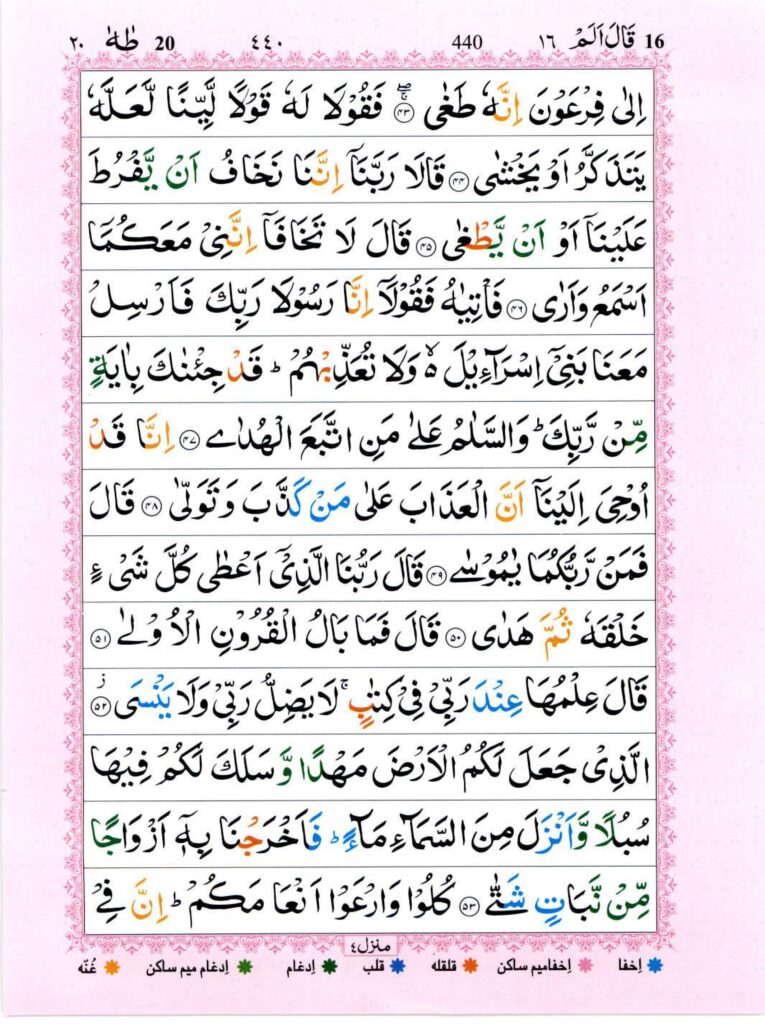 16 قَالَ اَلَمْ ١٦ 440 ٤٤٠ 20 طٰهٰ ٢٠
اِلٰى فِرْعَوْنَ اِنَّهٗ طَغٰى ۖۚ ﴿۴۳﴾ فَقُوْلَا لَهٗ قَوْلًا لَّيِّنًا لَّعَلَّهٗ
يَتَذَكَّرُ اَوْ يَخْشٰى ﴿۴۴﴾ قَالَا رَبَّنَاۤ اِنَّنَا نَخَافُ اَنْ يَّفْرُطَ
عَلَيْنَاۤ اَوْ اَنْ يَّطْغٰى ﴿۴۵﴾ قَالَ لَا تَخَافَاۤ اِنَّنِىْ مَعَكُمَاۤ
اَسْمَعُ وَاَرٰى ﴿۴۶﴾ فَاْتِيٰهُ فَقُوْلَاۤ اِنَّا رَسُوْلَا رَبِّكَ فَاَرْسِلْ
مَعَنَا بَنِىْۤ اِسْرَآءِيْلَ ەۙ وَلَا تُعَذِّبْهُمْ ؕ قَدْ جِئْنٰكَ بِاٰيَةٍ
مِّنْ رَّبِّكَ ؕ وَالسَّلٰمُ عَلٰى مَنِ اتَّبَعَ الْهُدٰى ﴿۴۷﴾ اِنَّا قَدْ
اُوْحِىَ اِلَيْنَاۤ اَنَّ الْعَذَابَ عَلٰى مَنْ كَذَّبَ وَتَوَلّٰى ﴿۴۸﴾ قَالَ
فَمَنْ رَّبُّكُمَا يٰمُوْسٰى ﴿۴۹﴾ قَالَ رَبُّنَا الَّذِىْۤ اَعْطٰى كُلَّ شَىْءٍ
خَلْقَهٗ ثُمَّ هَدٰى ﴿۵۰﴾ قَالَ فَمَا بَالُ الْقُرُوْنِ الْاُوْلٰى ﴿۵۱﴾
قَالَ عِلْمُهَا عِنْدَ رَبِّىْ فِىْ كِتٰبٍ ۚ لَا يَضِلُّ رَبِّىْ وَلَا يَنْسَى ؗ ﴿۵۲﴾
الَّذِىْ جَعَلَ لَكُمُ الْاَرْضَ مَهْدًا وَّسَلَكَ لَكُمْ فِيْهَا
سُبُلًا وَّاَنْزَلَ مِنَ السَّمَآءِ مَآءً ؕ فَاَخْرَجْنَا بِهٖۤ اَزْوَاجًا
مِّنْ نَّبَاتٍ شَتّٰى ﴿۵۳﴾ كُلُوْا وَارْعَوْا اَنْعَامَكُمْ ؕ اِنَّ فِىْ
منزل ٤
اِخفا اِخفامیم ساکن قلقلہ قلب اِدغام اِدغام میم ساکن غُنّہ